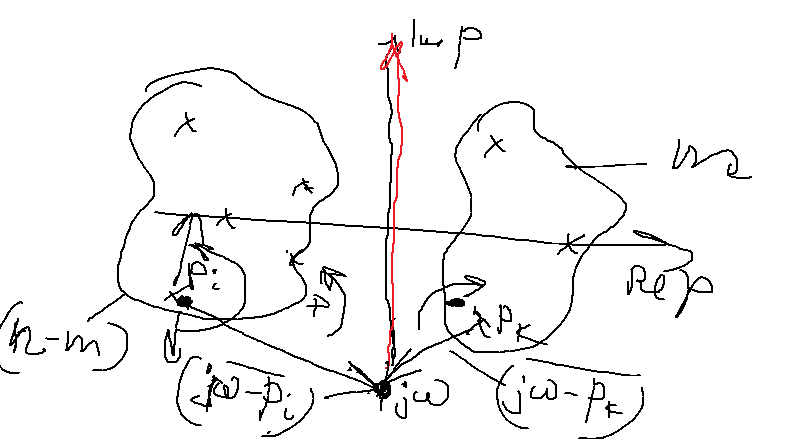 Im p
m
Re p
p_i
(n-m)
p_k
(jω-p_i)
jω
(jω-p_k)